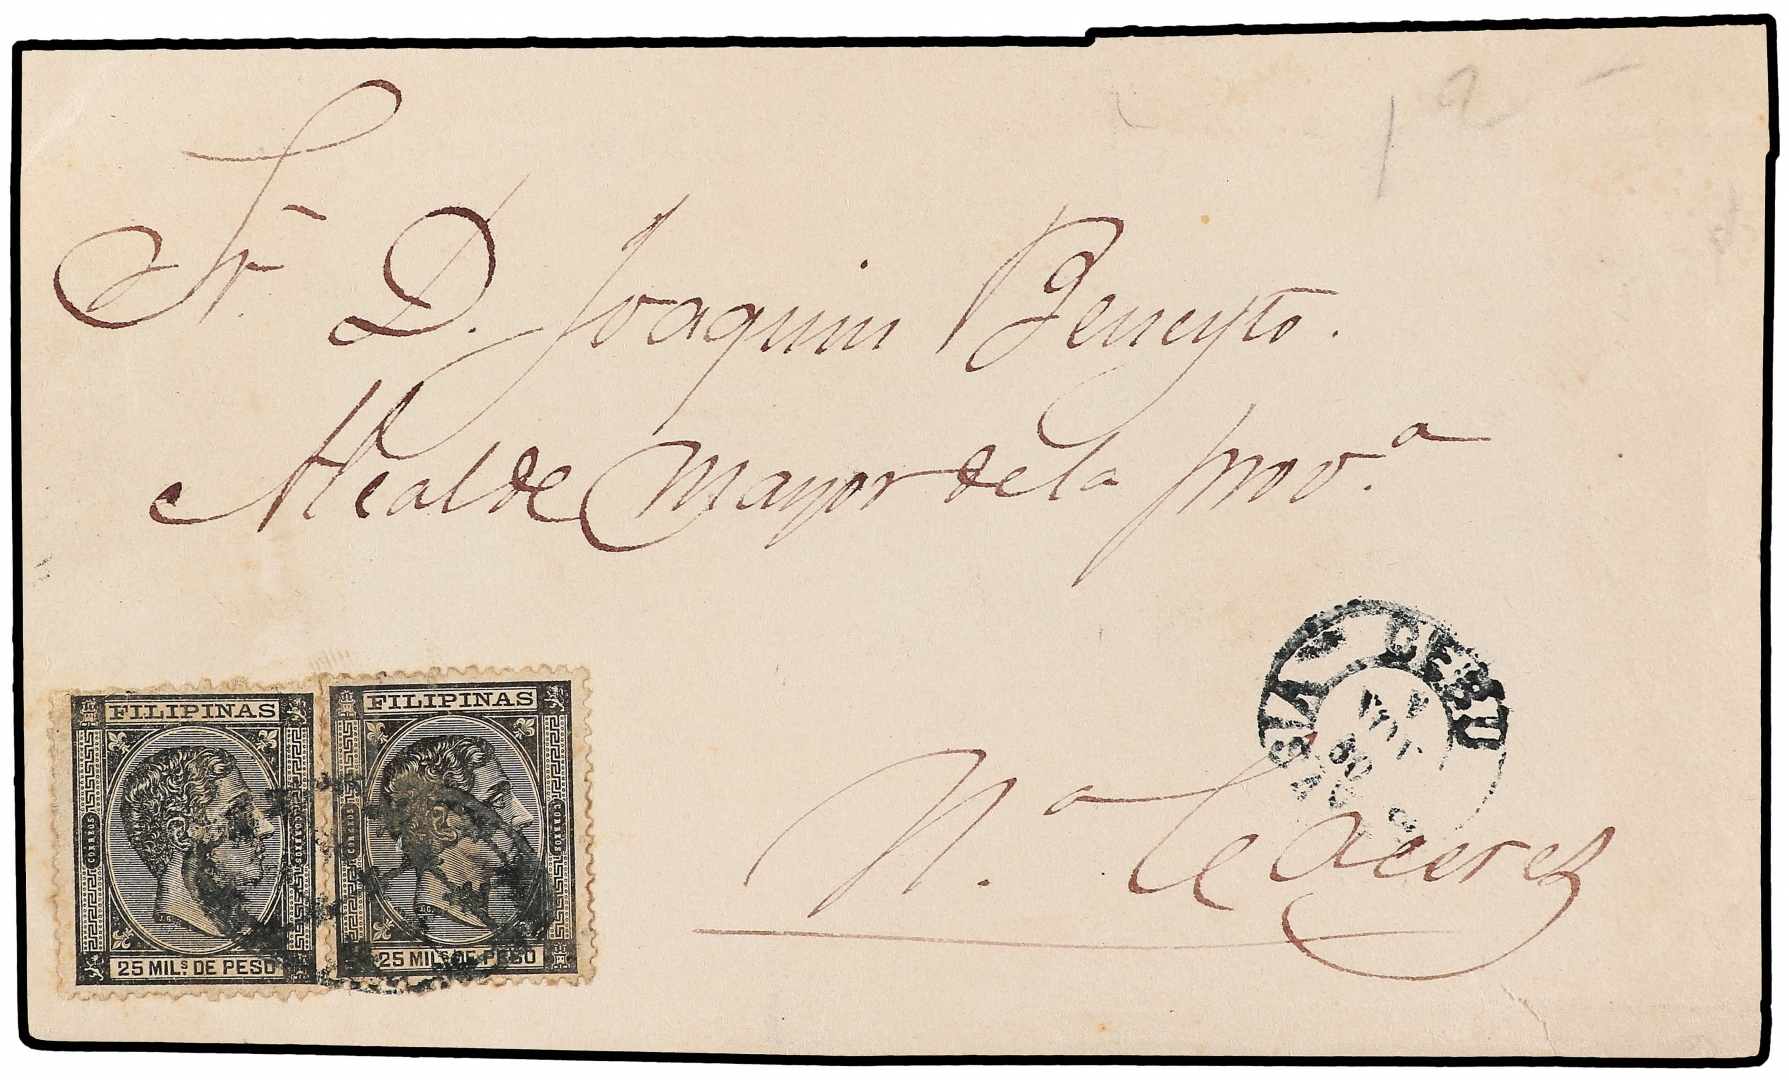 Sr. D. Joaquin Beneyto.
Alcalde mayor de la prov.ª
N.ª Caceres
CEBU
FILIPINAS
CORREOS
CORREOS
25 MILS. DE PESO
FILIPINAS
CORREOS
CORREOS
25 MILS. DE PESO